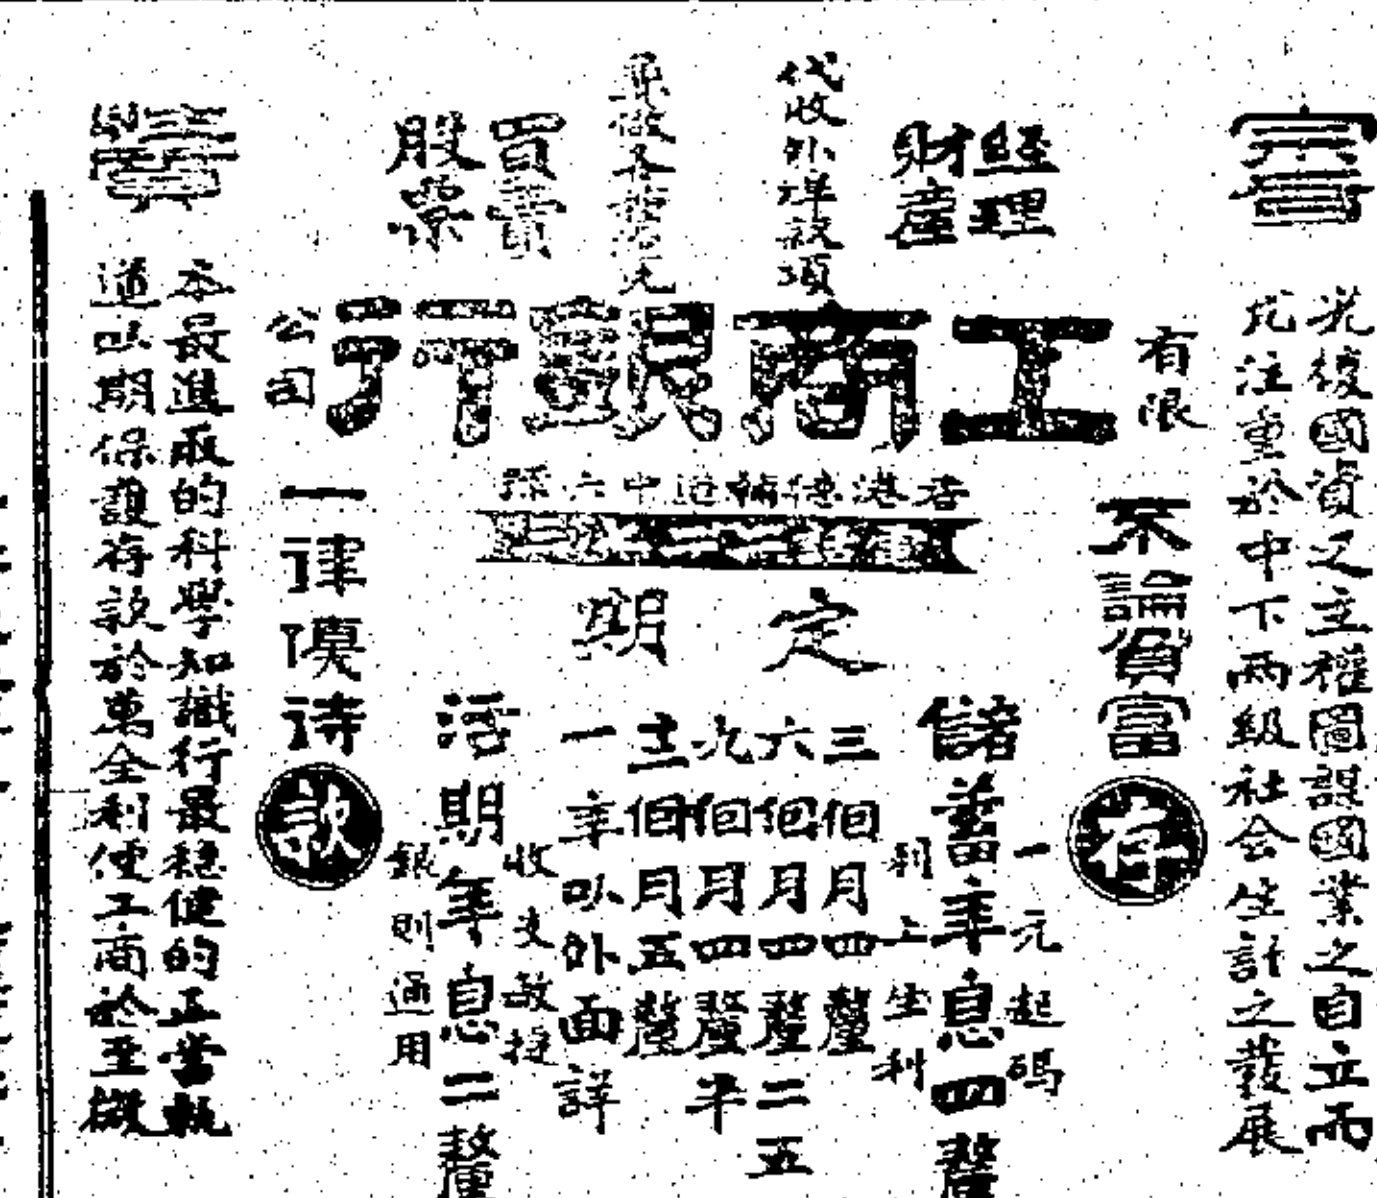 宗旨
光復國資之主權圖謀國業之自立而
尤注重於中下兩級社会生計之發展
有限
工商銀行
公司
經理
財產
代收外洋款項
買賣
股票
香港德輔道中六號
不論貧富
存
一律優待
款
定期
儲蓄年息四釐
一元起碼
利上生利
三個月四釐
六個月四釐二五
九個月四釐半
十二個月五釐
一年以外面詳
活期年息二釐
收支敏捷
銀則通用
本最進取的科學知識行最穩健的正當軌
道以期保護存款於萬全利便工商於至微